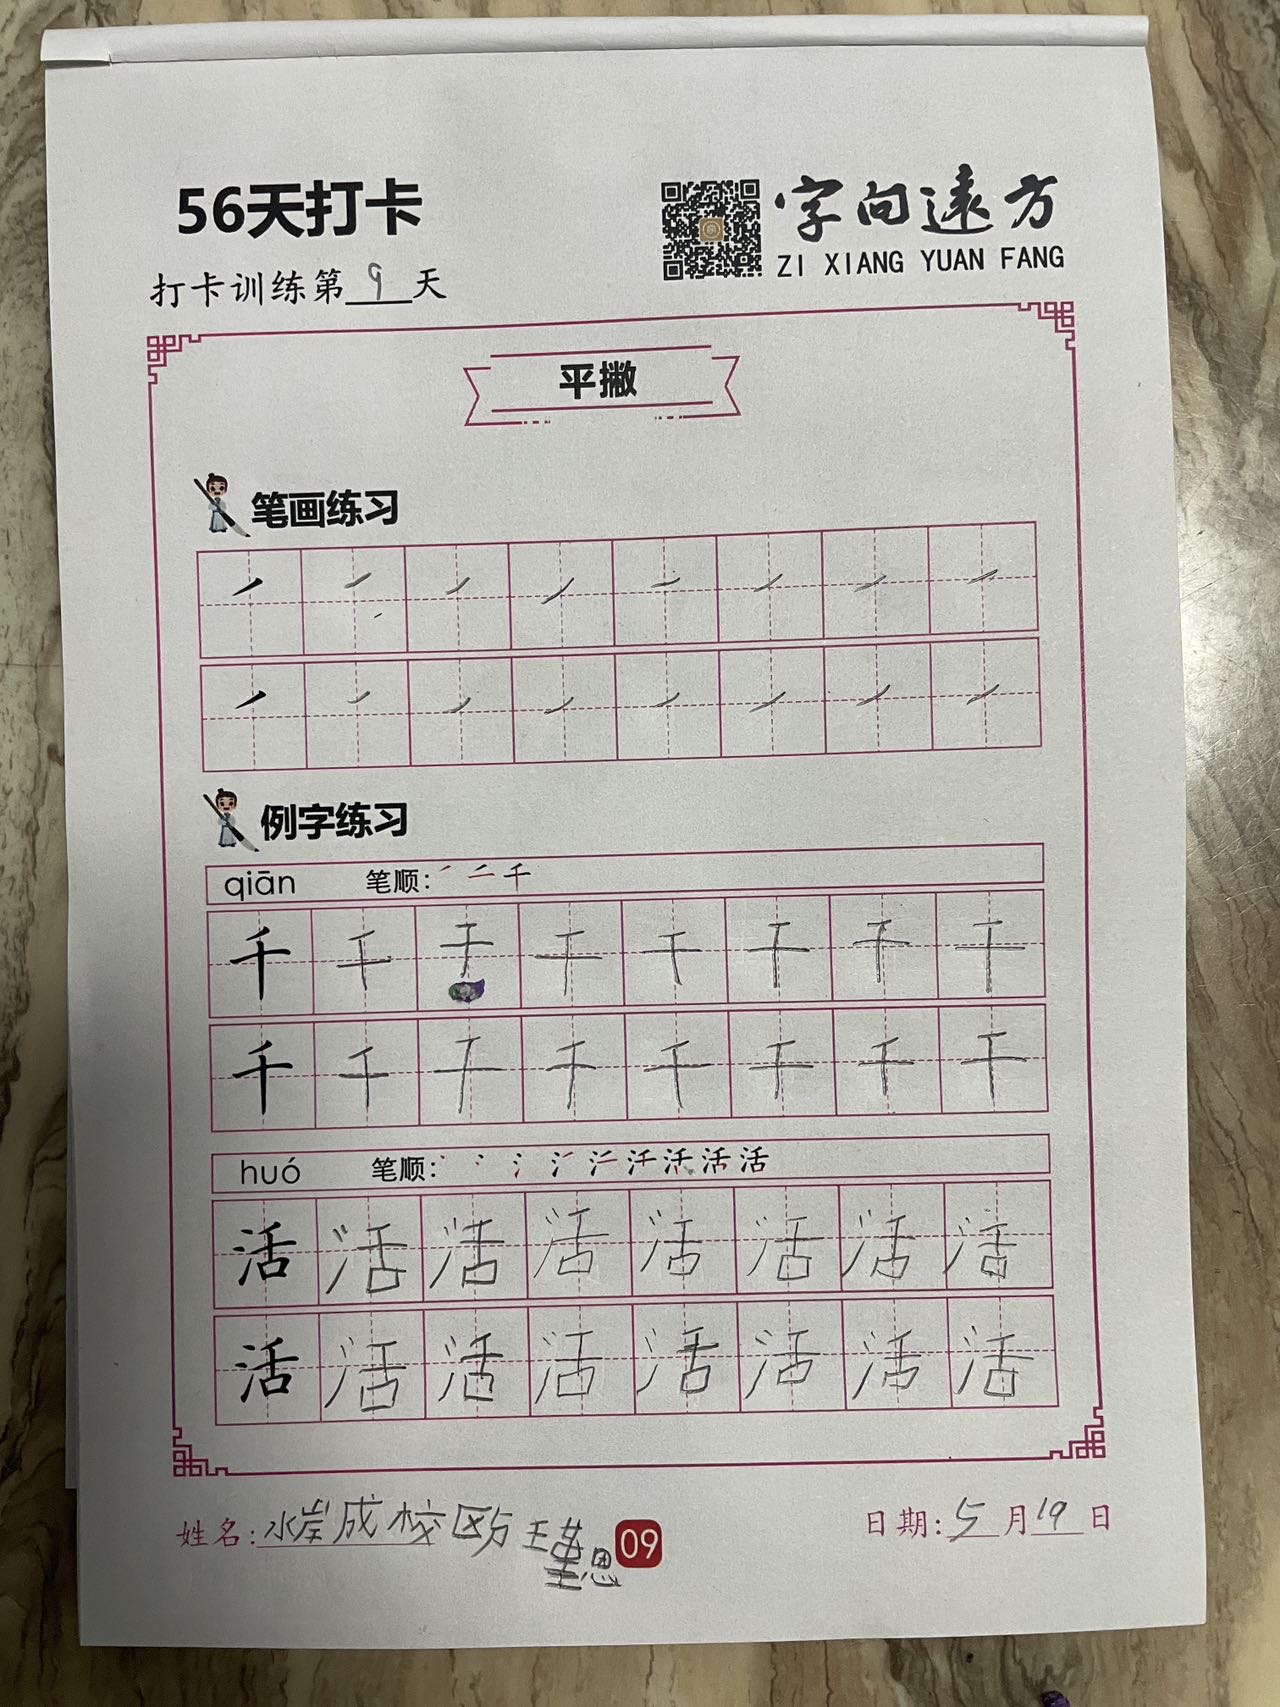 56天打卡
字向远方
ZI XIANG YUAN FANG
打卡训练第9天
平撇
笔画练习
例字练习
qiān 笔顺: 丿 二 千
千 千 千 千 千 千 千 千
千 千 千 千 千 千 千 千
huó 笔顺: 活 活
活 活 活 活 活 活 活 活
活 活 活 活 活 活 活 活
姓名: 水岸成校区 思
09
日期: 5月19日